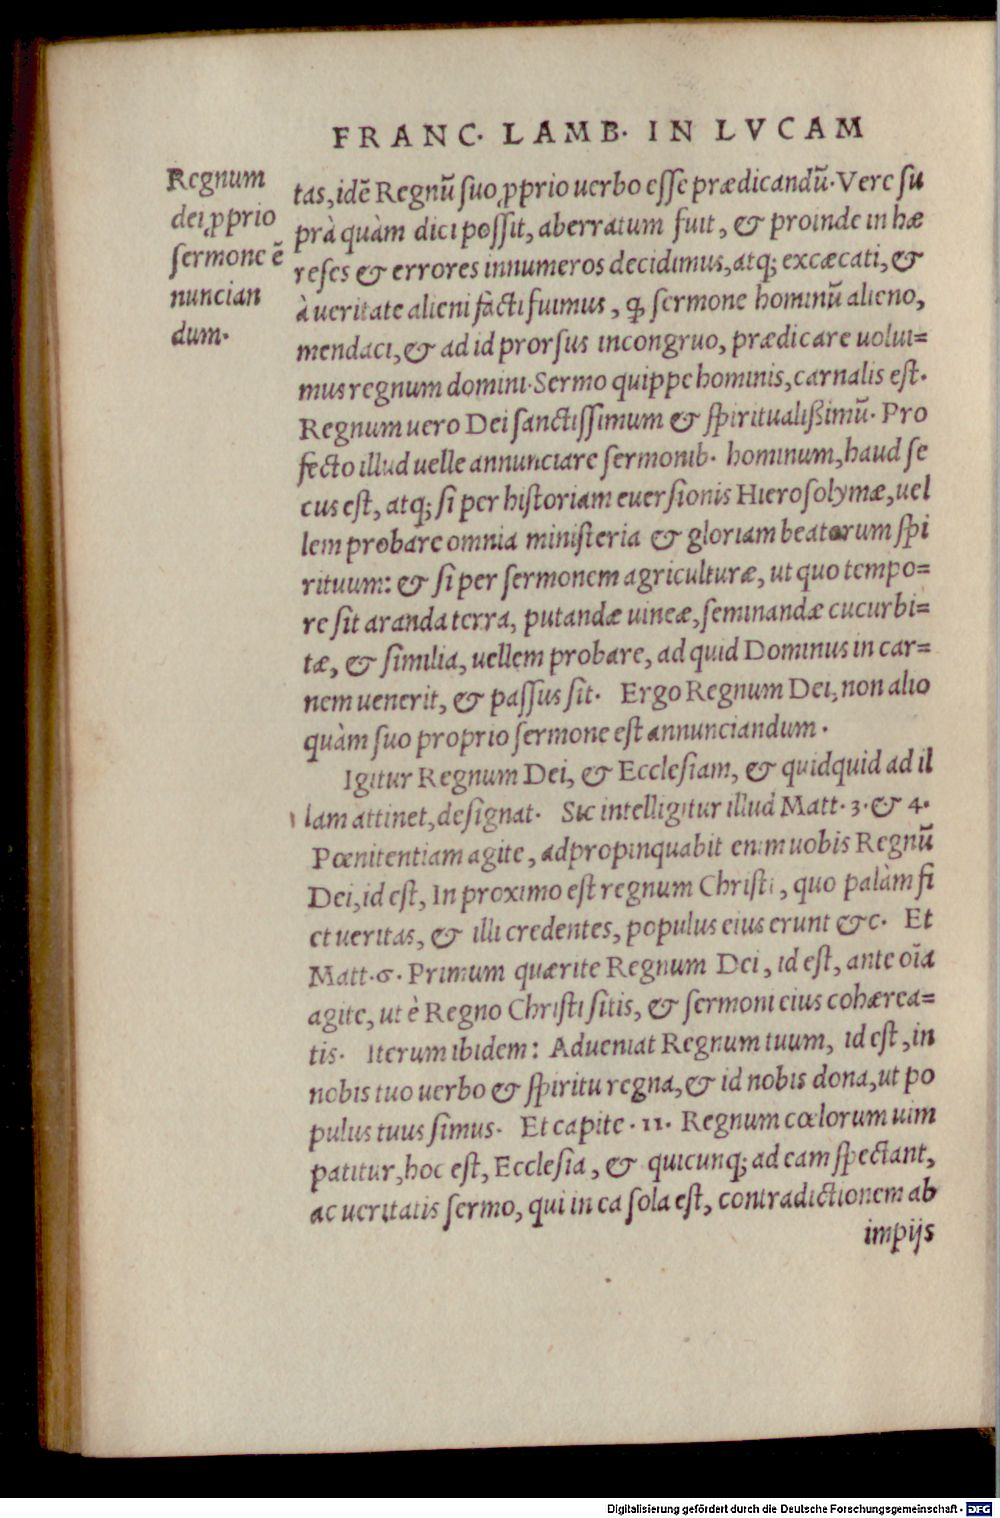 FRANC· LAMB· IN LVCAM
Regnum
dei ꝓprio
sermone ē
nuncian
dum·
tas, idē Regnū suo ꝓprio uerbo esse prædicandū· Vere su
prà quàm dici possit, aberratum fuit, & proinde in hæ
reses & errores innumeros decidimus, atq; excæcati, &
à ueritate alieni facti fuimus, ꝙ sermone hominū alieno,
mendaci, & ad id prorsus incongruo, prædicare uolui=
mus regnum domini· Sermo quippe hominis, carnalis est·
Regnum uero Dei sanctissimum & spiritualißimū· Pro
fecto illud uelle annunciare sermonib· hominum, haud se
cus est, atq; si per historiam euersionis Hierosolymæ, uel
lem probare omnia ministeria & gloriam beatorum spi
rituum: & si per sermonem agriculturæ, ut quo tempo=
re sit aranda terra, putandæ uineæ, seminandæ cucurbi=
tæ, & similia, uellem probare, ad quid Dominus in car=
nem uenerit, & passus sit· Ergo Regnum Dei, non alio
quàm suo proprio sermone est annunciandum·
Igitur Regnum Dei, & Ecclesiam, & quidquid ad il
lam attinet, designat· Sic intelligitur illud Matt· 3· & 4·
Pœnitentiam agite, adpropinquabit enim uobis Regnū
Dei, id est, In proximo est regnum Christi, quo palàm fi
et ueritas, & illi credentes, populus eius erunt &c· Et
Matt·6· Primum quærite Regnum Dei, id est, ante oīa
agite, ut è Regno Christi sitis, & sermoni eius cohærea=
tis· Iterum ibidem: Adueniat Regnum tuum, id est, in
nobis tuo uerbo & spiritu regna, & id nobis dona, ut po
pulus tuus simus· Et capite ·11· Regnum cœlorum uim
patitur, hoc est, Ecclesia, & quicunq; ad eam spectant,
ac ueritatis sermo, qui in ea sola est, contradictionem ab
impijs
Digitalisierung gefördert durch die Deutsche Forschungsgemeinschaft - DFG